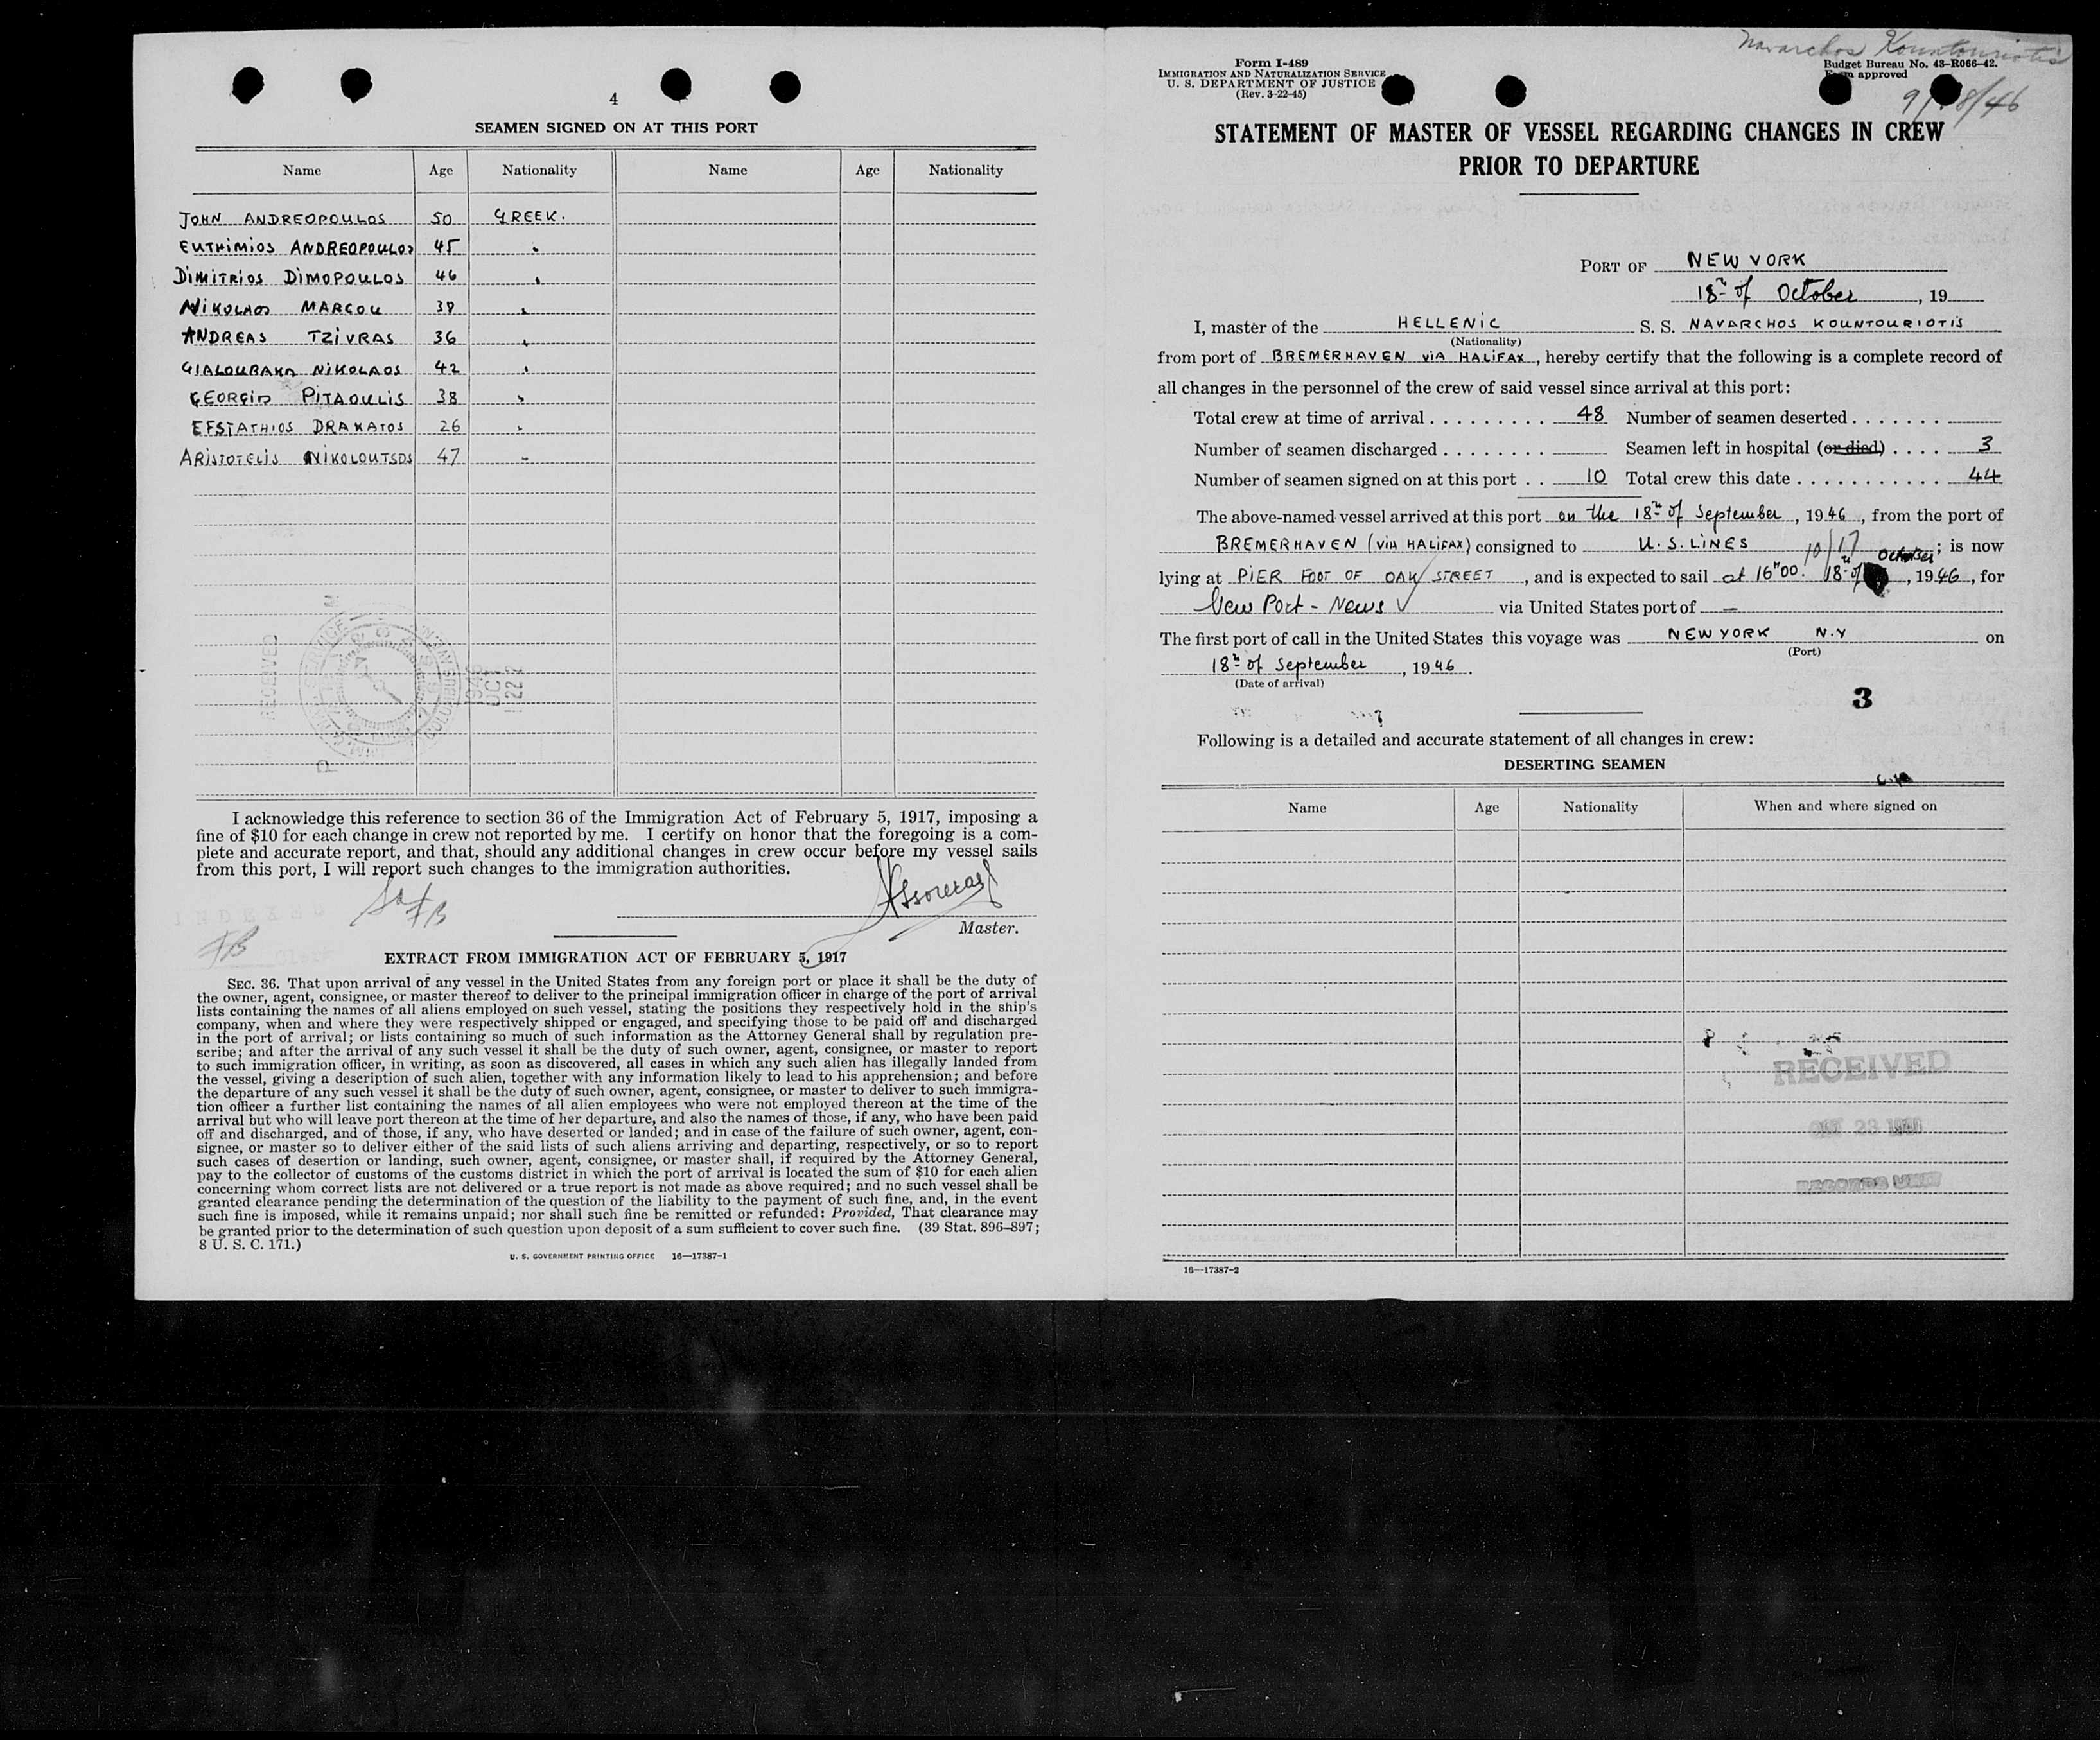 4
SEAMEN SIGNED ON AT THIS PORT
Name Age Nationality Name Age Nationality
JOHN ANDREOPOULOS 50 GREEK.
EUTHIMIOS ANDREOPOULOS 45 "
DIMITRIOS DIMOPOULOS 46 "
NIKOLAOS MARGOU 38 "
ANDREAS TZIVRAS 36 "
GIALOURAKA NIKOLAOS 42 "
GEORGIO PITAOULIS 38 "
EFSTATHIOS DRAKATOS 26 "
ARISTOTELIS NIKOLOUTSOS 47 "
RECEIVED
I acknowledge this reference to section 36 of the Immigration Act of February 5, 1917, imposing a
fine of $10 for each change in crew not reported by me. I certify on honor that the foregoing is a com-
plete and accurate report, and that, should any additional changes in crew occur before my vessel sails
from this port, I will report such changes to the immigration authorities.
INDEXED
FB
Master.
EXTRACT FROM IMMIGRATION ACT OF FEBRUARY 5, 1917
SEC. 36. That upon arrival of any vessel in the United States from any foreign port or place it shall be the duty of
the owner, agent, consignee, or master thereof to deliver to the principal immigration officer in charge of the port of arrival
lists containing the names of all aliens employed on such vessel, stating the positions they respectively hold in the ship's
company, when and where they were respectively shipped or engaged, and specifying those to be paid off and discharged
in the port of arrival; or lists containing so much of such information as the Attorney General shall by regulation pre-
scribe; and after the arrival of any such vessel it shall be the duty of such owner, agent, consignee, or master to report
to such immigration officer, in writing, as soon as discovered, all cases in which any such alien has illegally landed from
the vessel, giving a description of such alien, together with any information likely to lead to his apprehension; and before
the departure of any such vessel it shall be the duty of such owner, agent, consignee, or master to deliver to such immigra-
tion officer a further list containing the names of all alien employees who were not employed thereon at the time of the
arrival but who will leave port thereon at the time of her departure, and also the names of those, if any, who have been paid
off and discharged, and of those, if any, who have deserted or landed; and in case of the failure of such owner, agent, con-
signee, or master so to deliver either of the said lists of such aliens arriving and departing, respectively, or so to report
such cases of desertion or landing, such owner, agent, consignee, or master shall, if required by the Attorney General,
pay to the collector of customs of the customs district in which the port of arrival is located the sum of $10 for each alien
concerning whom correct lists are not delivered or a true report is not made as above required; and no such vessel shall be
granted clearance pending the determination of the question of the liability to the payment of such fine, and, in the event
such fine is imposed, while it remains unpaid; nor shall such fine be remitted or refunded: Provided, That clearance may
be granted prior to the determination of such question upon deposit of a sum sufficient to cover such fine. (39 Stat. 896–897;
8 U. S. C. 171.)
U. S. GOVERNMENT PRINTING OFFICE 16—17387-1
Navarchos Kountouriotis
Form I-489
IMMIGRATION AND NATURALIZATION SERVICE
U. S. DEPARTMENT OF JUSTICE
(Rev. 3-22-45)
Budget Bureau No. 43-R066-42.
Form approved
9/18/46
STATEMENT OF MASTER OF VESSEL REGARDING CHANGES IN CREW
PRIOR TO DEPARTURE
PORT OF NEW YORK
18th of October, 19
I, master of the HELLENIC S. S. NAVARCHOS KOUNTOURIOTIS
(Nationality)
from port of BREMERHAVEN VIA HALIFAX, hereby certify that the following is a complete record of
all changes in the personnel of the crew of said vessel since arrival at this port:
Total crew at time of arrival . . . . . . . . . 48 Number of seamen deserted . . . . . . .
Number of seamen discharged . . . . . . . . Seamen left in hospital (or died) . . . . 3
Number of seamen signed on at this port . . 10 Total crew this date . . . . . . . . . . . 44
The above-named vessel arrived at this port on the 18th of September, 1946, from the port of
BREMERHAVEN (VIA HALIFAX) consigned to U.S. LINES 10/17 October; is now
lying at PIER FOOT OF OAK STREET, and is expected to sail at 16h00. 18th of, 1946, for
New Port - News via United States port of —
The first port of call in the United States this voyage was NEW YORK N.Y on
(Port)
18th of September, 1946.
(Date of arrival)
3
Following is a detailed and accurate statement of all changes in crew:
DESERTING SEAMEN
Name Age Nationality When and where signed on
RECEIVED
RECORDS UNIT
16—17387-2